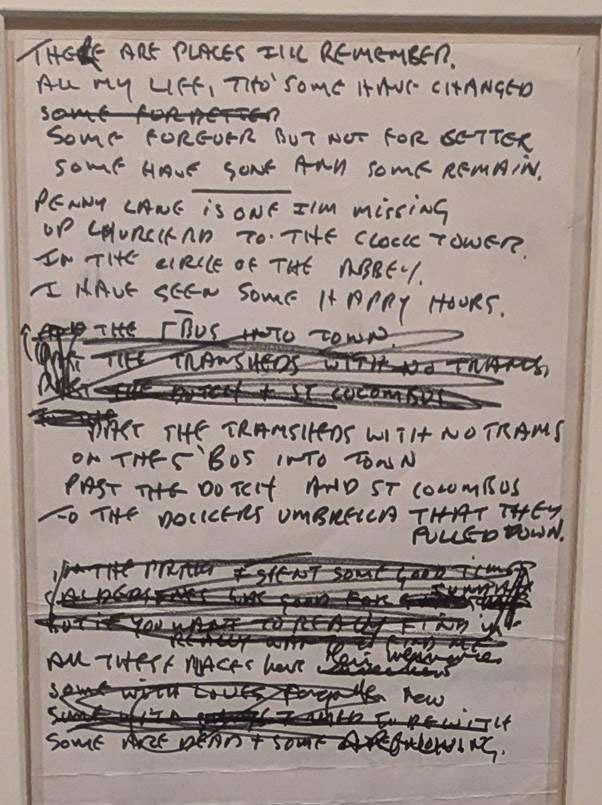 THERE ARE PLACES I'LL REMEMBER.
ALL MY LIFE, THO' SOME HAVE CHANGED
SOME FOR BETTER
SOME FOREVER BUT NOT FOR BETTER
SOME HAVE GONE AND SOME REMAIN.
PENNY LANE IS ONE I'M MISSING
UP CHURCH RD TO THE CLOCK TOWER.
IN THE CIRCLE OF THE ABBEY.
I HAVE SEEN SOME HAPPY HOURS.
THE 5 BUS INTO TOWN.
THE TRAMSHEDS WITH NO TRAMS,
PAST THE DUTCH + ST COLOMBUS
PAST THE TRAMSHEDS WITH NO TRAMS
ON THE 5 BUS INTO TOWN
PAST THE DUTCH AND ST COLOMBUS
TO THE DOCKERS UMBRELLA THAT THEY
PULLED DOWN.
IN THE PARK I SPENT SOME GOOD TIMES
WAS GOOD FOR
BUT IF YOU WANT TO REALLY FIND
REALLY WANT TO FIND ME
ALL THESE PLACES have
SOME WITH LOVES new
SOME WITH
SOME ARE DEAD + SOME ARE LIVING.